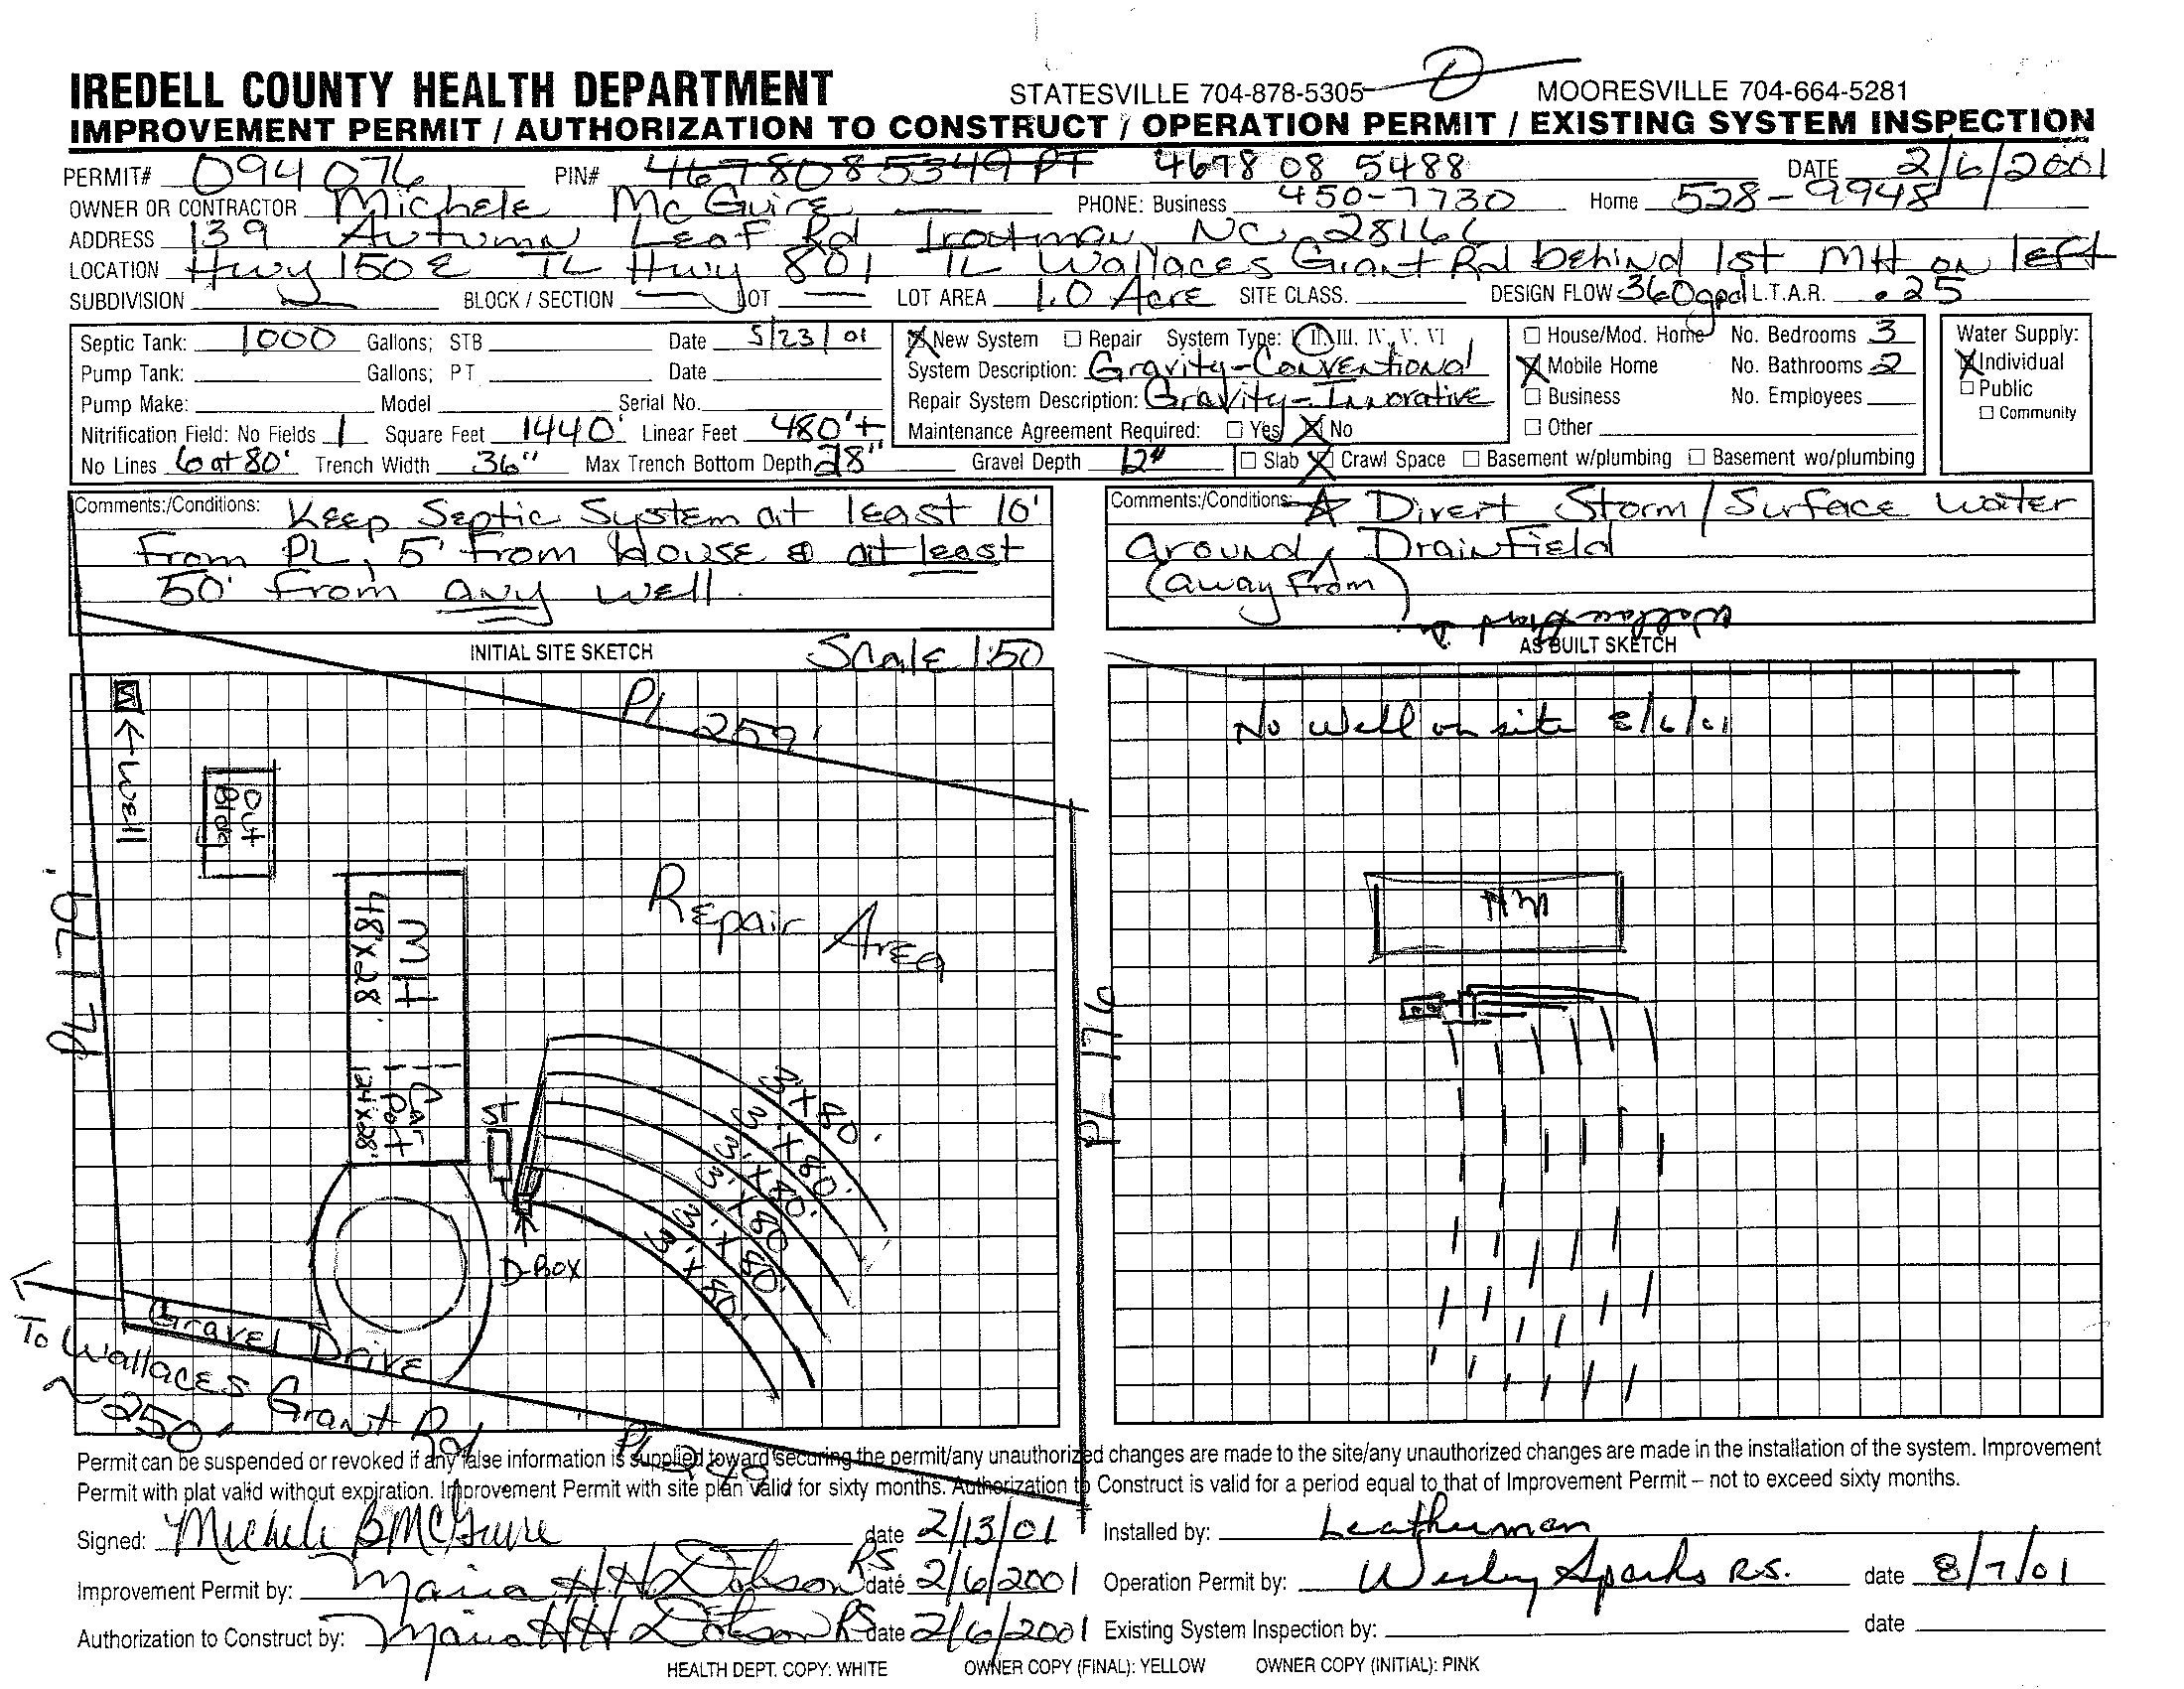 IREDELL COUNTY HEALTH DEPARTMENT STATESVILLE 704-878-5305 D MOORESVILLE 704-664-5281
IMPROVEMENT PERMIT / AUTHORIZATION TO CONSTRUCT / OPERATION PERMIT / EXISTING SYSTEM INSPECTION
PERMIT# 094076 PIN# 4678085349 PT 4678 08 5488 DATE 2/6/2001
OWNER OR CONTRACTOR Michele McGuire PHONE: Business 450-7730 Home 528-9948
ADDRESS 139 Autumn Leaf Rd Troutman, NC 28166
LOCATION Hwy 150 E TL Hwy 801 TL Wallaces Grant Rd behind 1st MH on left
SUBDIVISION BLOCK / SECTION LOT LOT AREA 1.0 Acre SITE CLASS. DESIGN FLOW 360gpd L.T.A.R. .25
Septic Tank: 1000 Gallons; STB Date 5/23/01 X New System Repair System Type: I, II, III, IV, V, VI House/Mod. Home No. Bedrooms 3 Water Supply:
Pump Tank: Gallons; PT Date System Description: Gravity-Conventional X Mobile Home No. Bathrooms 2 X Individual
Pump Make: Model Serial No. Repair System Description: Gravity-Innovative Business No. Employees Public
Nitrification Field: No Fields 1 Square Feet 1440' Linear Feet 480'+ Maintenance Agreement Required: Yes X No Other Community
No Lines 6 at 80' Trench Width 36" Max Trench Bottom Depth 28" Gravel Depth 12" Slab X Crawl Space Basement w/plumbing Basement wo/plumbing
Comments:/Conditions: Keep Septic System at least 10'
From PL, 5' from House & at least
50' from any well.
Comments:/Conditions: Divert Storm/Surface water
around Drainfield
(away from)
Wallace Grant
INITIAL SITE SKETCH Scale 1:50
AS BUILT SKETCH
PL 259'
← Well
Out Bldg
PL 179'
MH
48x28'
Car Port
24x28'
Repair Area
ST
3'x80'
3'x80'
3'x80'
3'x80'
3'x80'
3'x80'
D-Box
PL 176
Gravel Drive
To Wallaces Grant Rd
~250'
PL 249
No Well on site 8/6/01
MH
Permit can be suspended or revoked if any false information is supplied toward securing the permit/any unauthorized changes are made to the site/any unauthorized changes are made in the installation of the system. Improvement
Permit with plat valid without expiration. Improvement Permit with site plan valid for sixty months. Authorization to Construct is valid for a period equal to that of Improvement Permit – not to exceed sixty months.
Signed: Michele B McGuire date 2/13/01 Installed by: Leatherman
Improvement Permit by: Maria H.H. Dobson RS date 2/6/2001 Operation Permit by: Wesley Sparks R.S. date 8/7/01
Authorization to Construct by: Maria HH Dobson RS date 2/6/2001 Existing System Inspection by: date
HEALTH DEPT. COPY: WHITE OWNER COPY (FINAL): YELLOW OWNER COPY (INITIAL): PINK